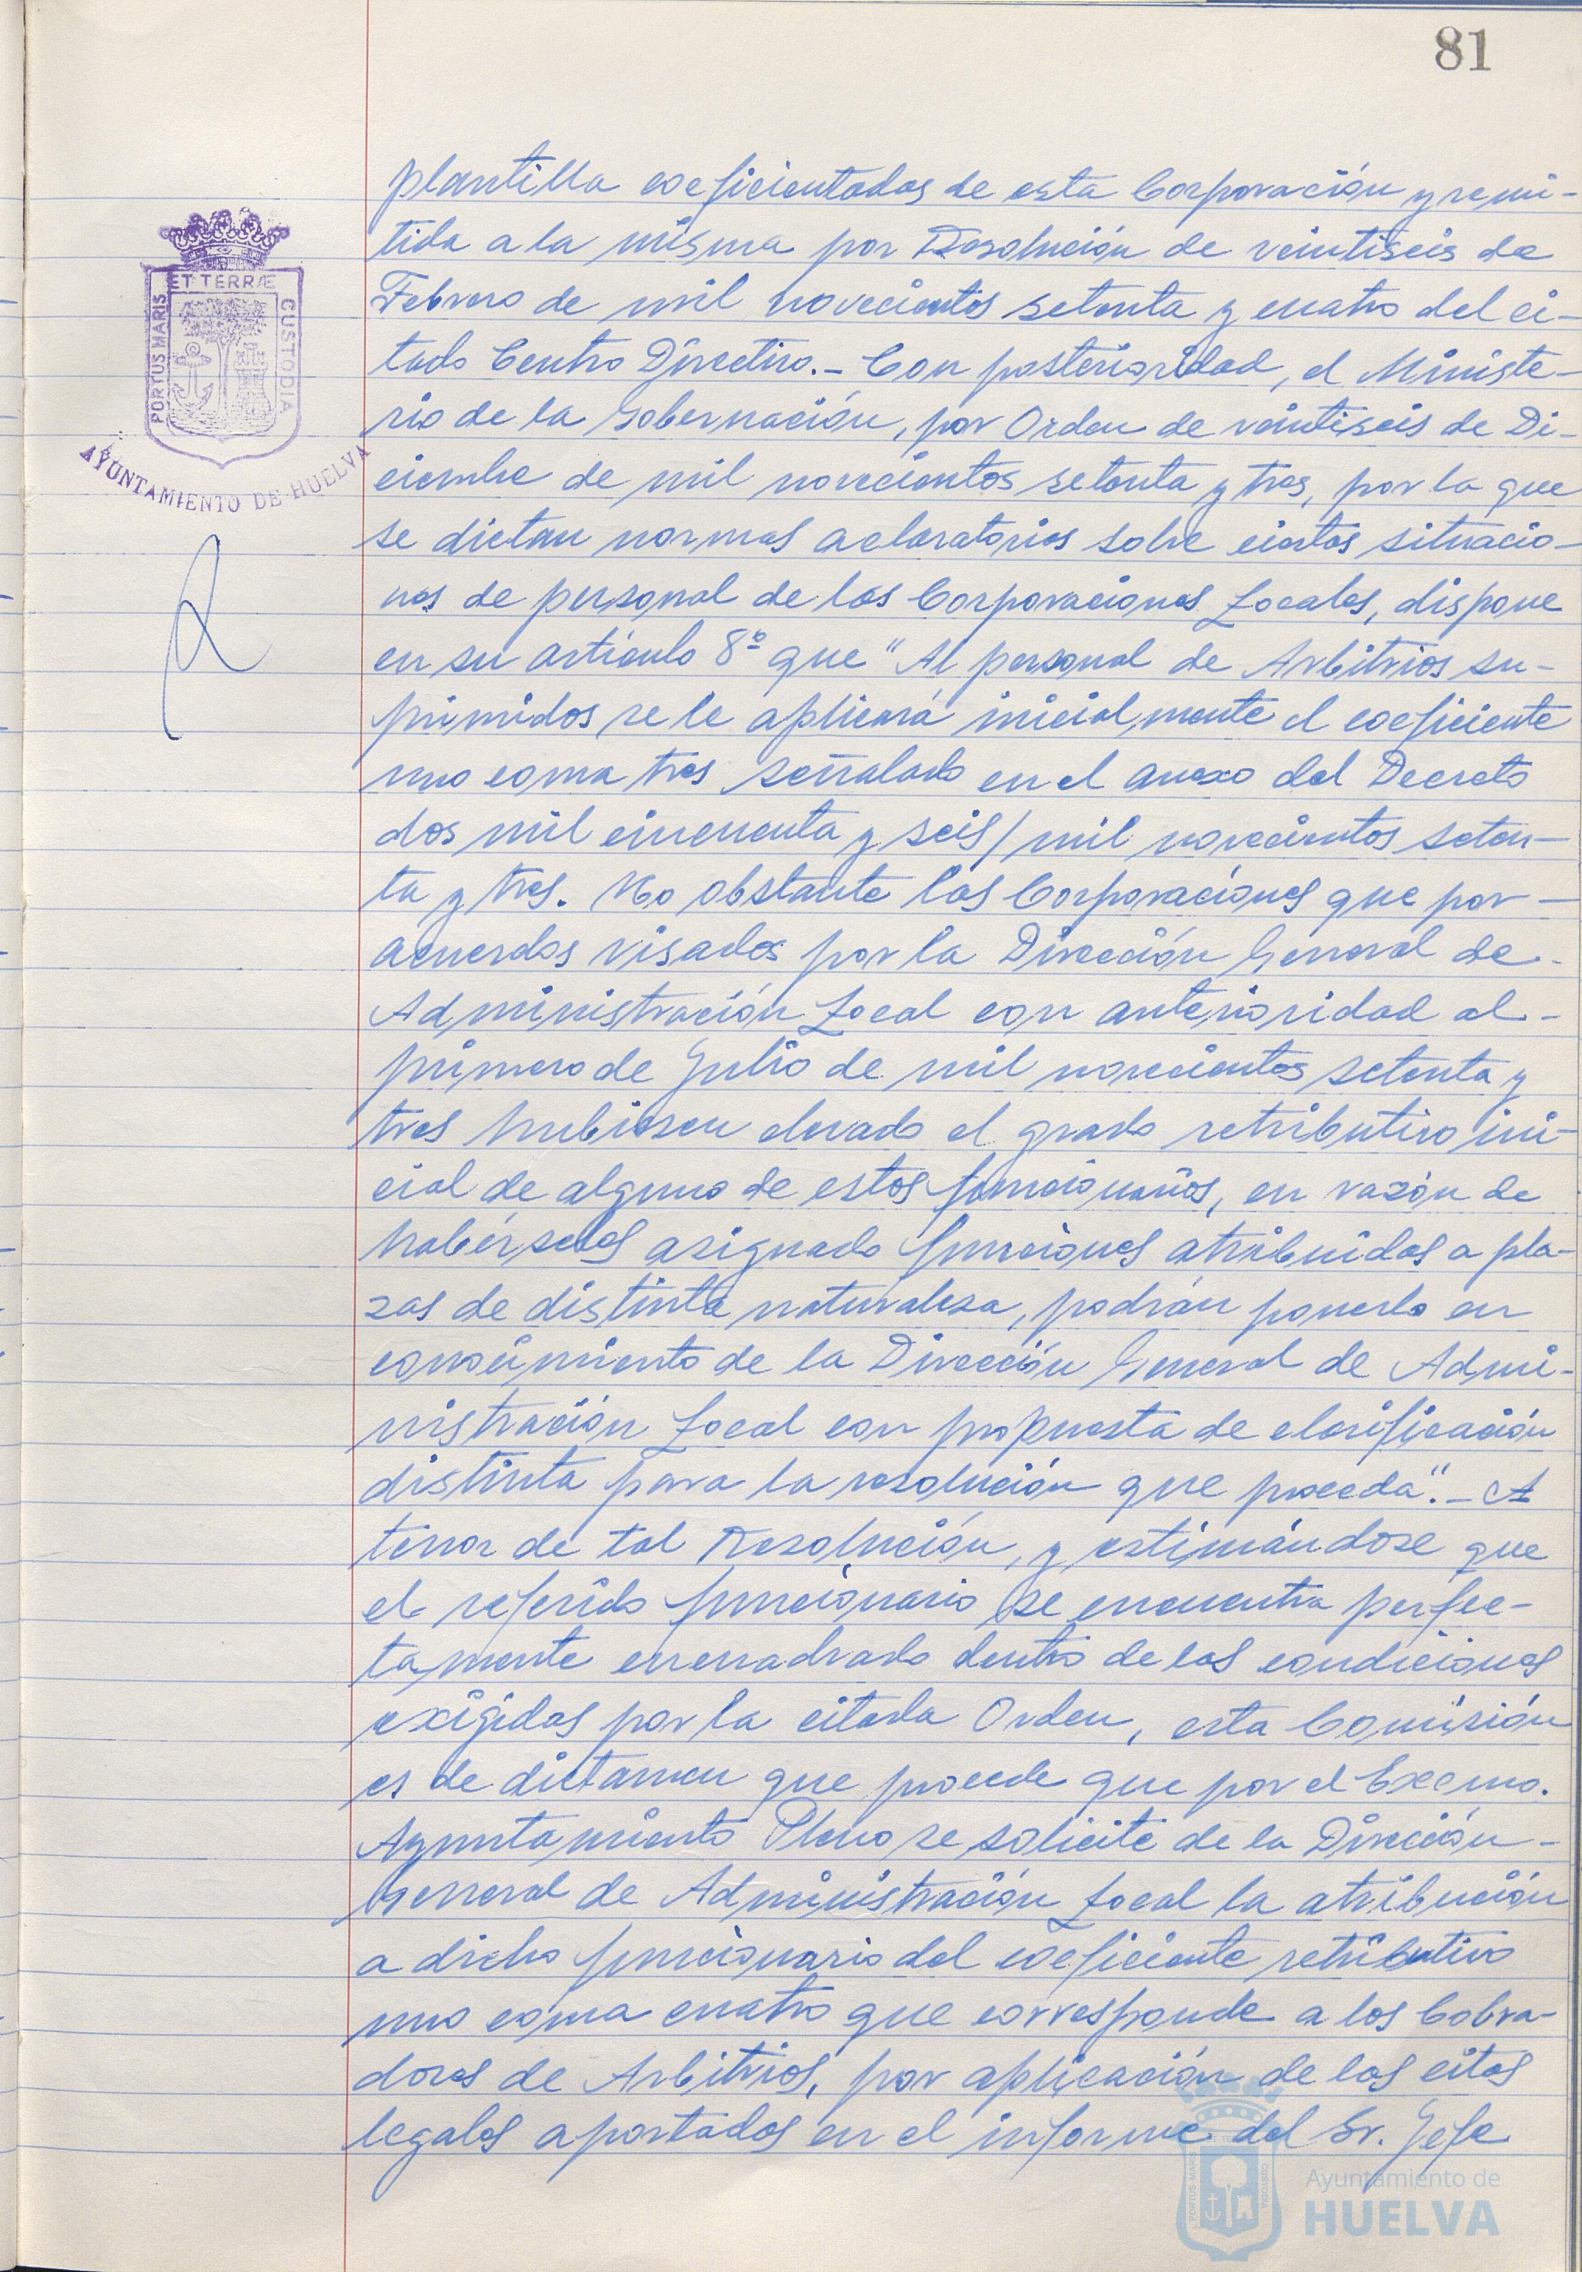 81
plantilla coeficientadas de esta Corporación y remi-
tida a la misma por Resolución de veintiseis de
Febrero de mil novecientos setenta y cuatro del ci-
tado Centro Directivo.- Con posterioridad, el Ministe-
rio de la Gobernación, por Orden de veintiseis de Di-
ciembre de mil novecientos setenta y tres, por la que
se dictan normas aclaratorias sobre ciertas situacio-
nes de personal de las Corporaciones Locales, dispone
en su artículo 8º que "Al personal de Arbitrios su-
primidos se le aplicará inicialmente el coeficiente
uno coma tres señalado en el anexo del Decreto
dos mil cincuenta y seis/mil novecientos seten-
ta y tres. No obstante las Corporaciones que por-
acuerdos visados por la Dirección General de-
Administración Local con anterioridad al-
primero de Julio de mil novecientos setenta y
tres hubiesen elevado el grado retributivo ini-
cial de alguno de estos funcionarios, en razón de
habérseles asignado funciones atribuidas a pla-
zas de distinta naturaleza, podrán ponerlo en
conocimiento de la Dirección General de Admi-
nistración Local con propuesta de clasificación
distinta para la resolución que proceda".- A
tenor de tal Resolución, y estimándose que
el referido funcionario se encuentra perfec-
tamente encuadrado dentro de las condiciones
exigidas por la citada Orden, esta Comisión
es de dictamen que procede que por el Excmo.
Ayuntamiento Pleno se solicite de la Dirección-
General de Administración Local la atribución
a dicho funcionario del coeficiente retributivo
uno coma cuatro que corresponde a los Cobra-
dores de Arbitrios, por aplicación de las citas
legales aportadas en el informe del Sr. Jefe
PORTUS MARIS
ET TERRÆ
CUSTODIA
AYUNTAMIENTO DE HUELVA
PORTUS MARIS
CUSTODIA
Ayuntamiento de
HUELVA